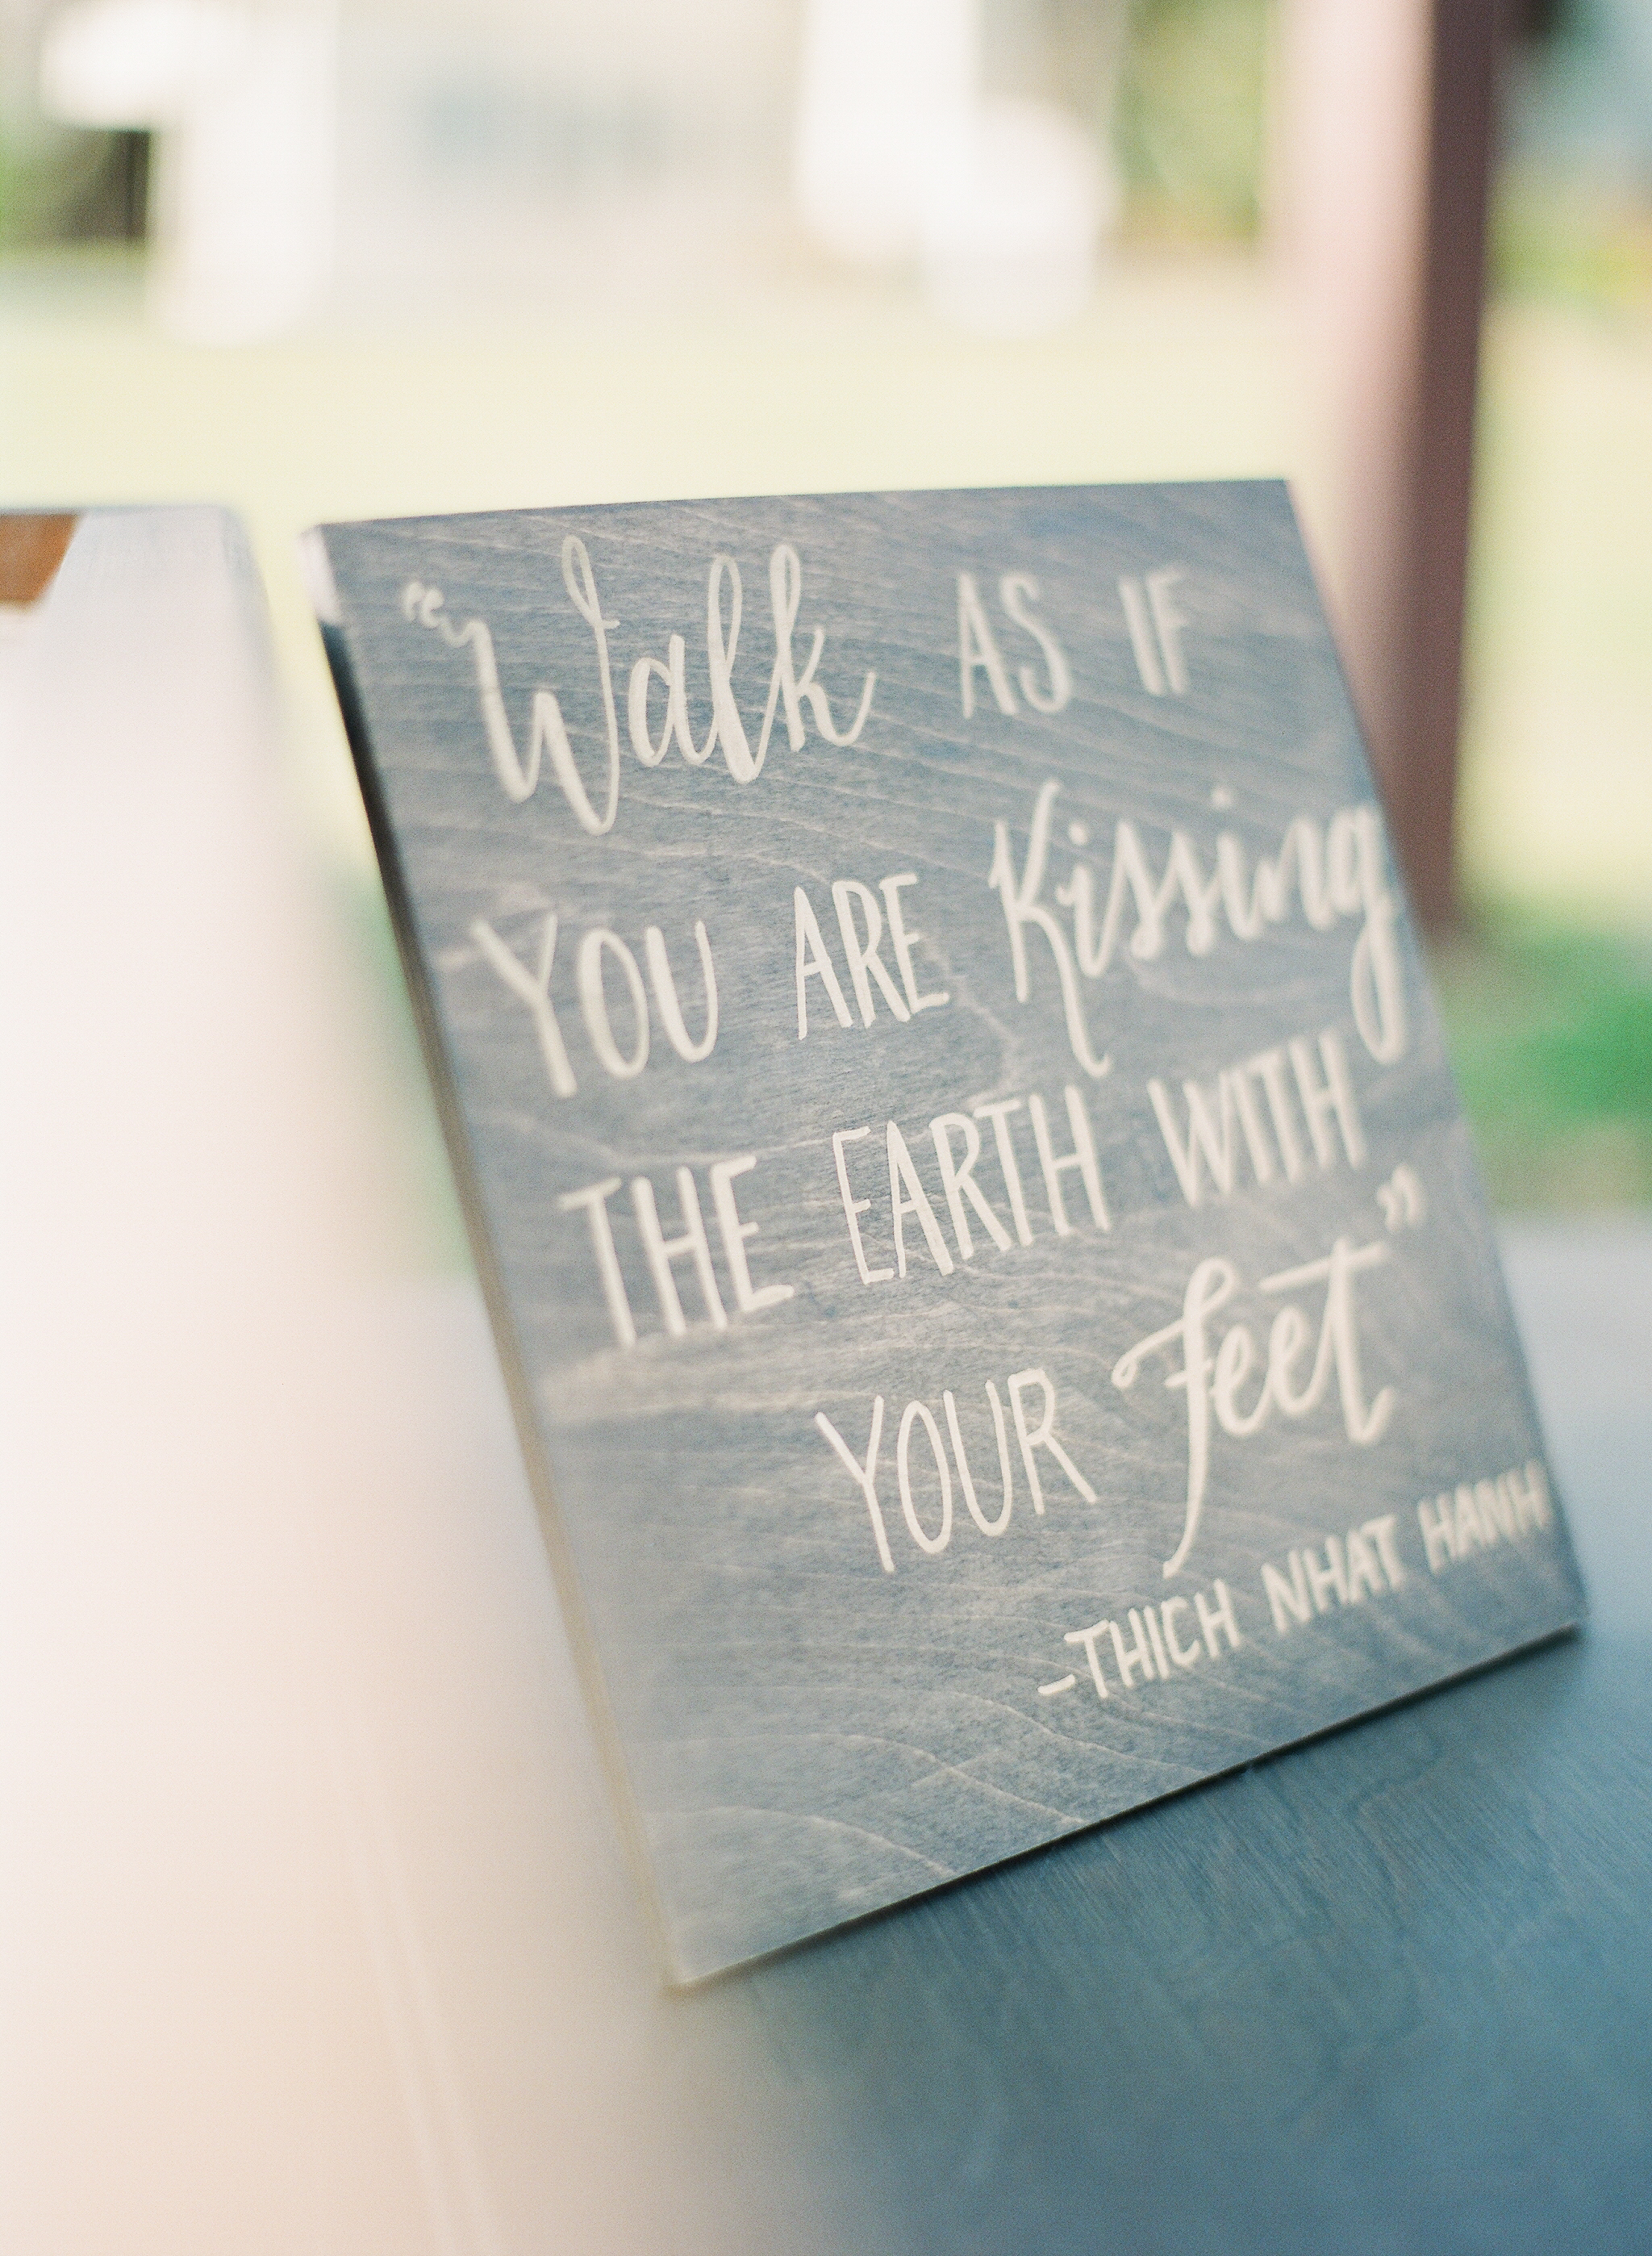 “Walk AS IF
YOU ARE Kissing
THE EARTH WITH
YOUR feet”
-THICH NHAT HANH